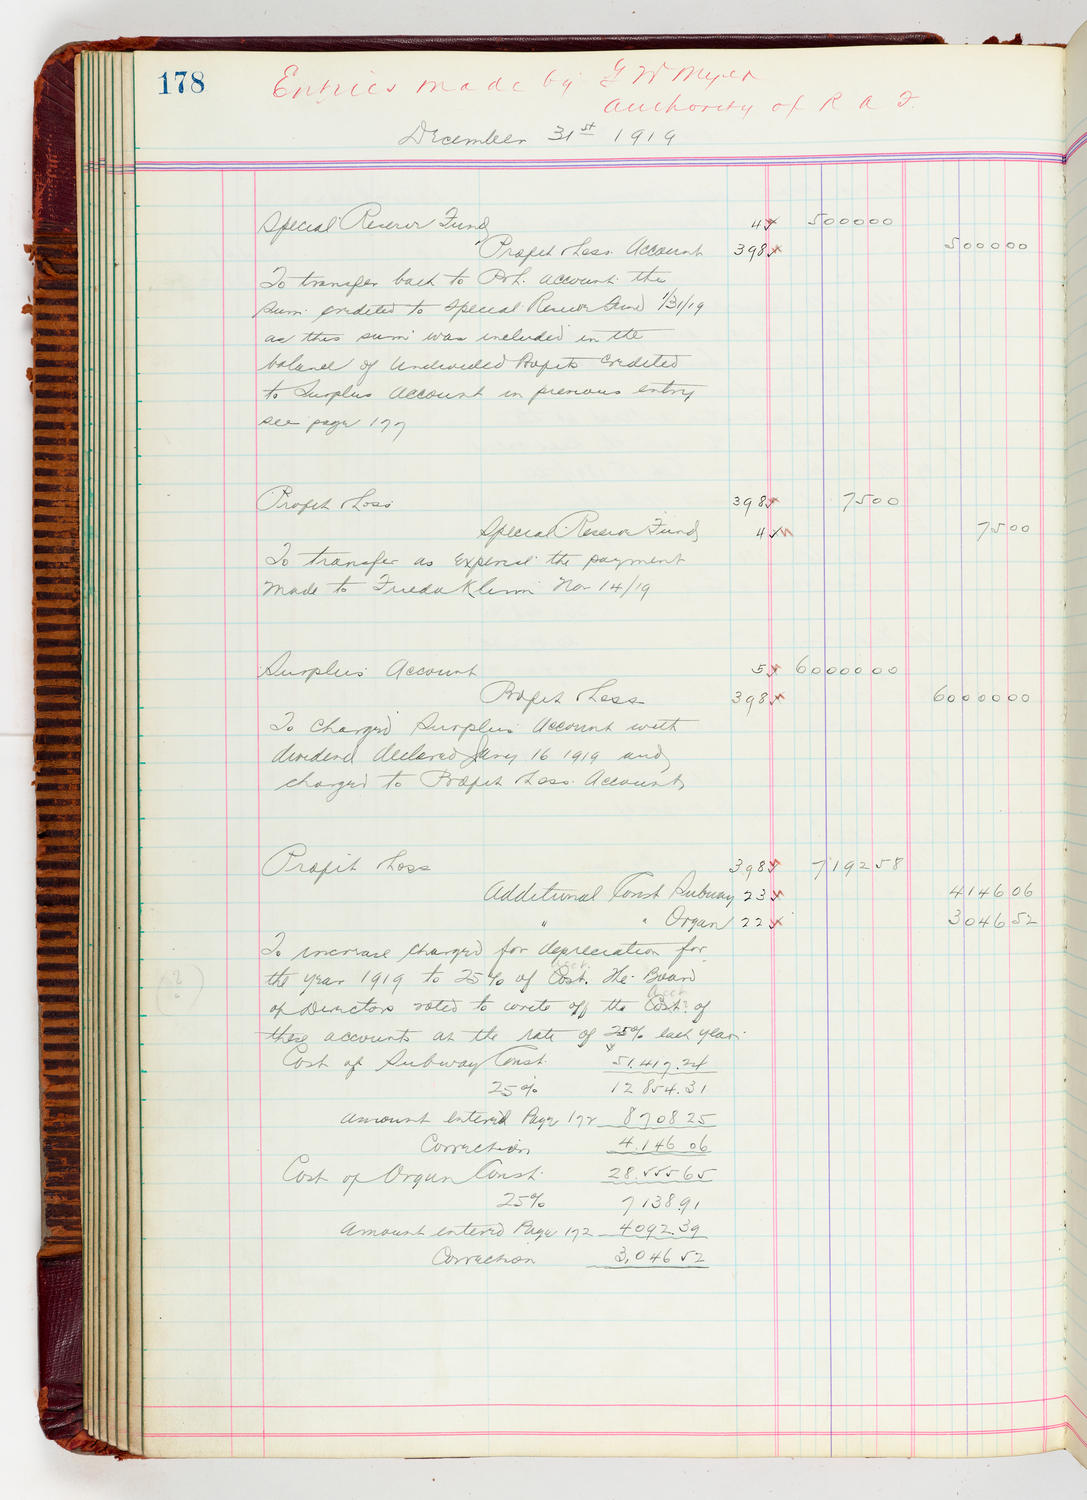 178
Entries made by G W Myer
Authority of R A F.
December 31st 1919
Special Reserve Fund 4 500000
Profit & Loss Account 398 500000
To transfer back to P & L. account the
sum credited to Special Reserve Fund 1/31/19
as this sum was included in the
balance of Undivided Profits credited
to Surplus Account in previous entry
see page 177
Profit & Loss 398 7500
Special Reserve Fund 4 7500
To transfer as Expense the payment
made to Frieda Klemm Nov 14/19
Surplus Account 5 6000000
Profit & Loss 398 6000000
To charge Surplus Account with
dividend declared Jany 16 1919 and
charged to Profit & Loss Account
Profit & Loss 398 719258
Additional Const Subway 23 414606
" " Organ 22 304652
To increase charged for depreciation for
the year 1919 to 25% of Cost. The Board
of Directors voted to write off the Cost of
these accounts at the rate of 25% each year
Cost of Subway Const. 51,417.24
25% 12854.31
Amount entered Page 172 870825
Correction 4,146 06
Cost of Organ Const. 28,555 65
25% 713891
Amount entered Page 172 4092.39
Correction 3,046 52